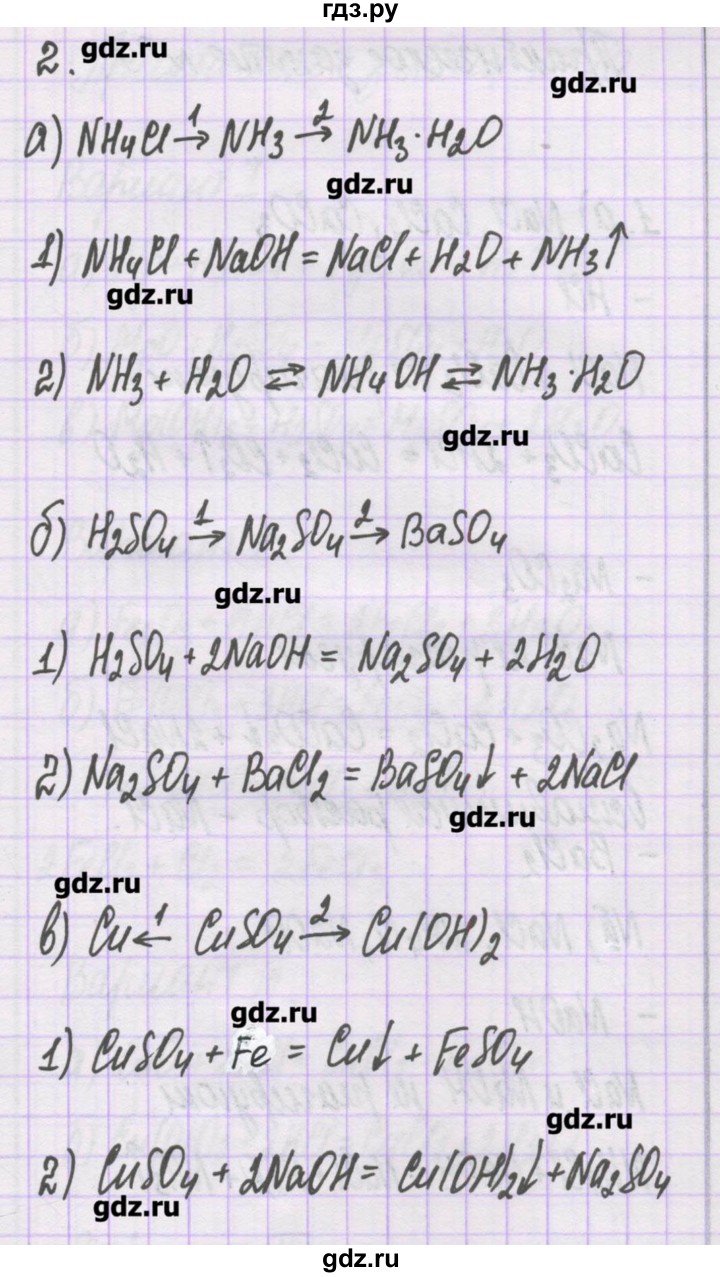 гдз.ру
2. gdz.ru
gdz.ru
а) NH4Cl →1 NH3 →2 NH3·H2O
gdz.ru
1) NH4Cl + NaOH = NaCl + H2O + NH3↑
gdz.ru
2) NH3 + H2O ⇄ NH4OH ⇄ NH3·H2O
gdz.ru
б) H2SO4 →1 Na2SO4 →2 BaSO4
gdz.ru
1) H2SO4 + 2NaOH = Na2SO4 + 2H2O
2) Na2SO4 + BaCl2 = BaSO4↓ + 2NaCl
gdz.ru
gdz.ru
в) Cu ←1 CuSO4 →2 Cu(OH)2
gdz.ru
1) CuSO4 + Fe = Cu↓ + FeSO4
gdz.ru
2) CuSO4 + 2NaOH = Cu(OH)2↓ + Na2SO4
gdz.ru
gdz.ru